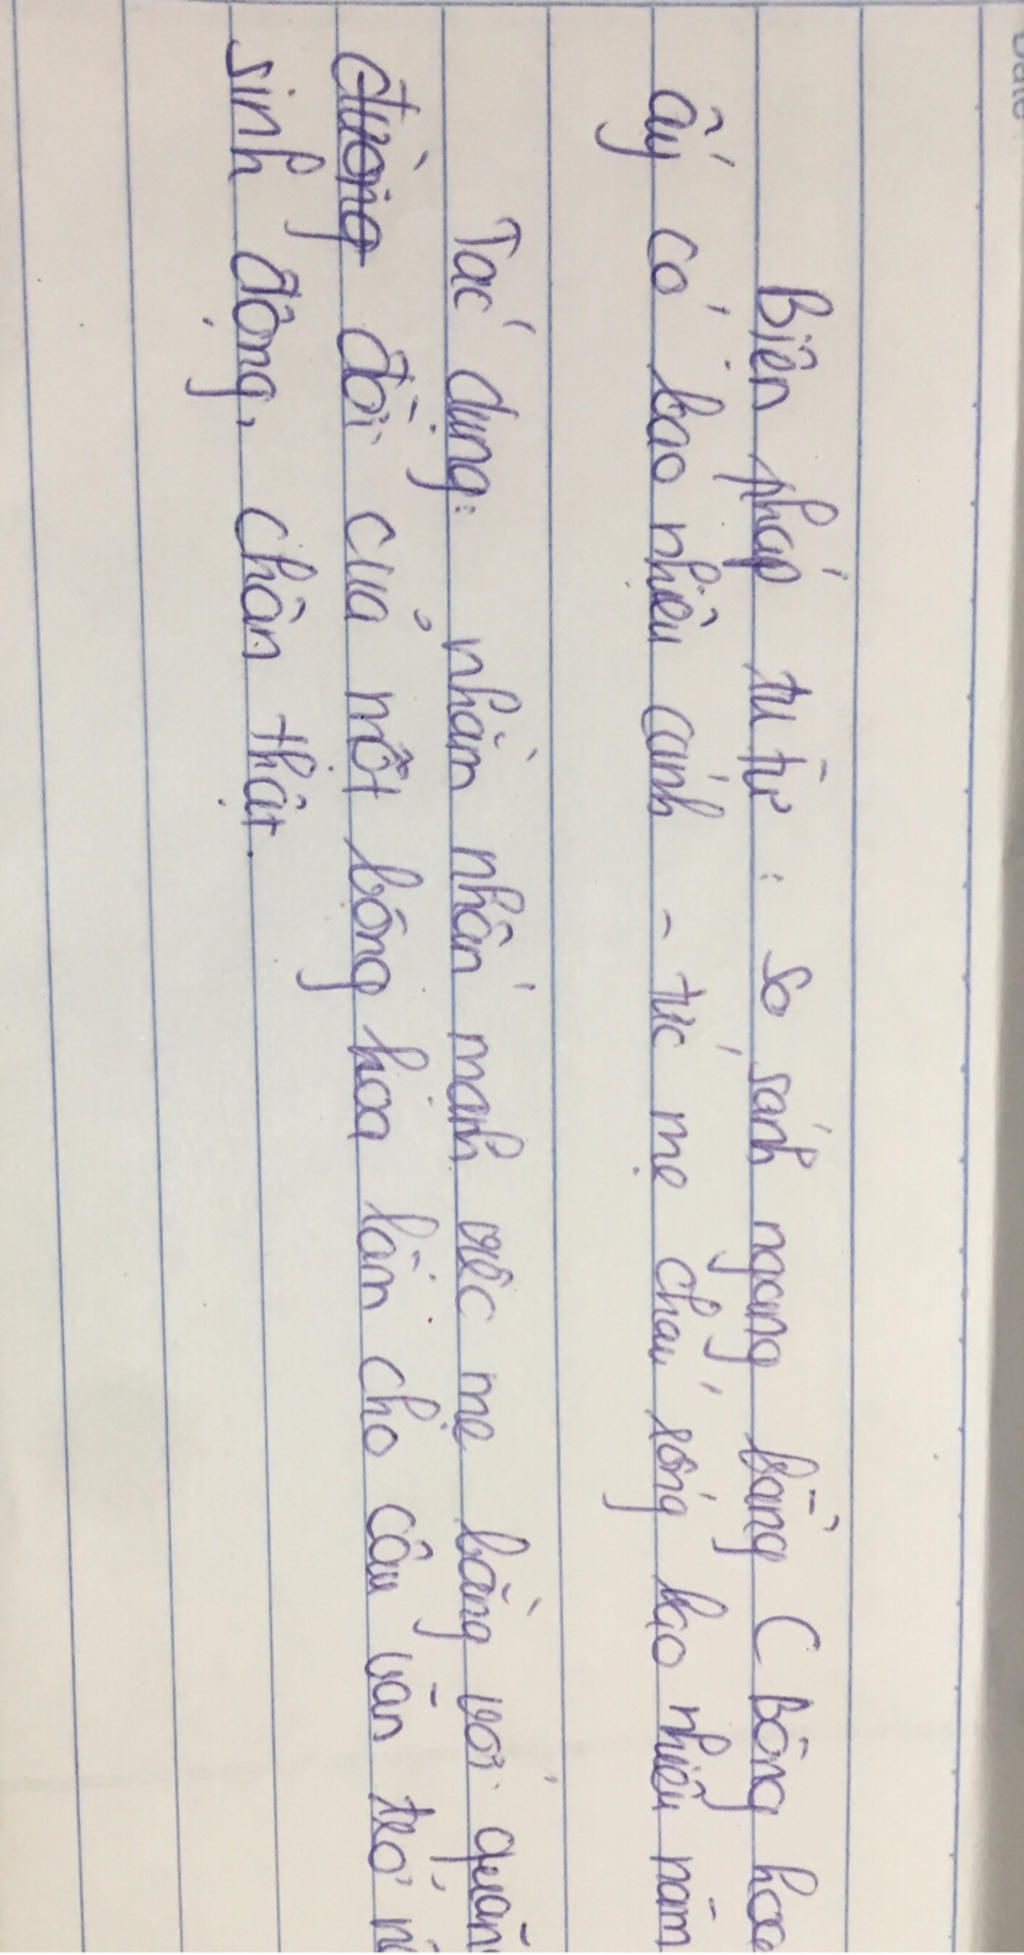 Date
Biện pháp tu từ : so sánh ngang bằng ( Bông hoa
ấy có bao nhiêu cánh - tức mẹ cháu sống bao nhiêu năm
Tác dụng: nhằm nhấn mạnh việc mẹ bằng với quãng
đường đời của một bông hoa làm cho câu văn trở
sinh động, chân thật.